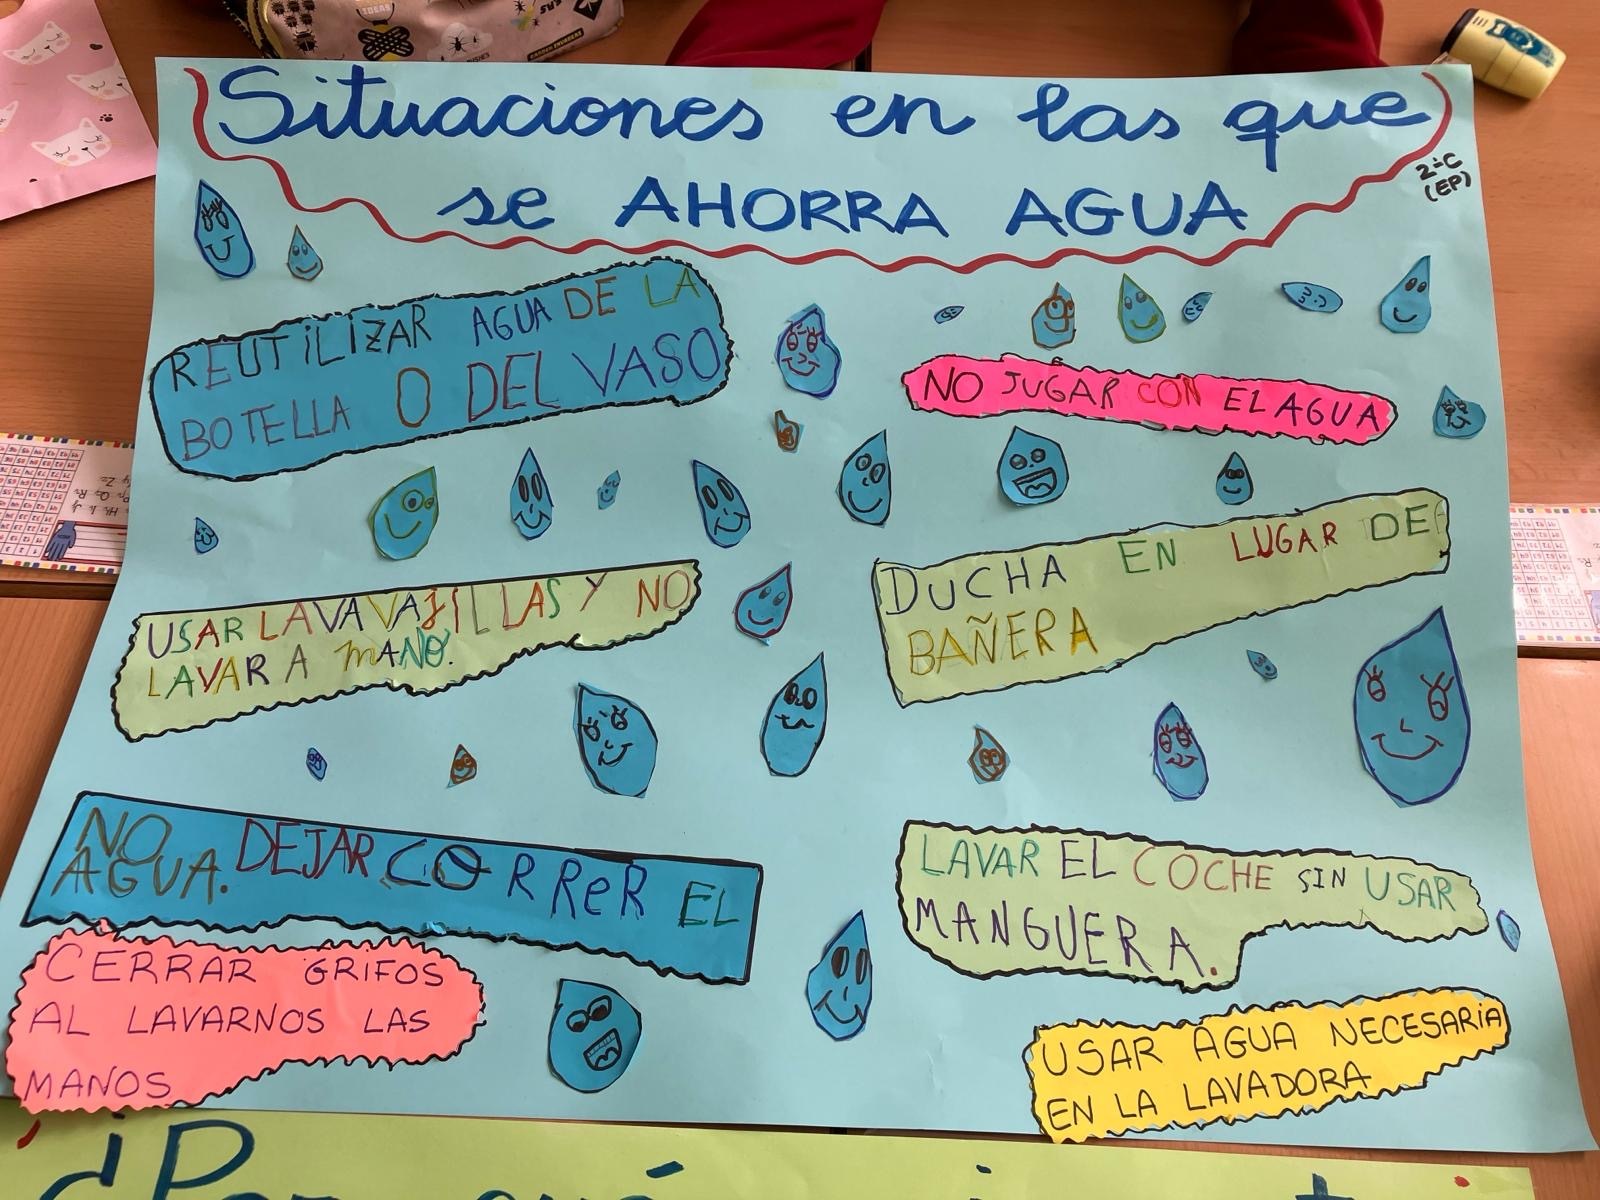 Situaciones en las que
se AHORRA AGUA
2ºC
(EP)
REUTILIZAR AGUA DE LA
BOTELLA O DEL VASO
NO JUGAR CON EL AGUA
USAR LAVAVAJILLAS Y NO
LAVAR A MANO.
DUCHA EN LUGAR DE
BAÑERA
NO DEJAR CORRER EL
AGUA.
LAVAR EL COCHE SIN USAR
MANGUERA.
CERRAR GRIFOS
AL LAVARNOS LAS
MANOS
USAR AGUA NECESARIA
EN LA LAVADORA